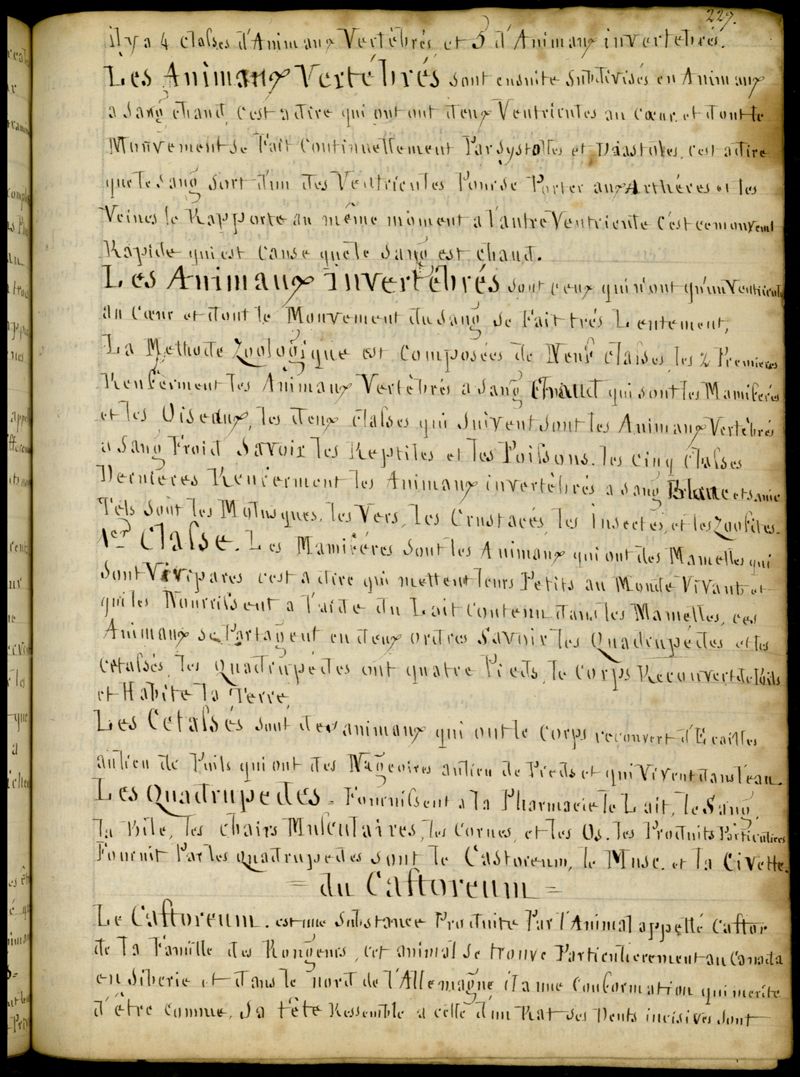 227.
il y a 4 classes d'Animaux Vertébrés et 5 d'Animaux invertebrés.
Les Animaux Vertébrés sont ensuite Subdivisés en Animaux
a Sang chaud, c'est a dire qui ont ont deux Ventricules au Cœur et dont le
Mouvement se Fait Continuellement Par Systoles et Diastoles, c'est a dire
que le Sang Sort d'un des Ventricules Pour se Porter aux Arthères et les
Veines le Rapporte au même moment a l'autre Ventricule c'est ce mouvement
Rapide qui est Cause que le Sang est chaud.
Les Animaux invertébrés sont ceux qui n'ont qu'un Ventricule
au Cœur et dont le Mouvement du Sang se Fait trés Lentement,
La Methode Zoologique est Composées de Neuf classes, les 2 Premieres
Renferment les Animaux Vertébrés a Sang chaud qui sont les Mamiferés
et les Oiseaux, les deux classes qui suivent sont les Animaux Vertébrés
a Sang Froid Savoir les Reptiles et les Poissons. les cinq classes
Dernieres Renferment les Animaux invertèbrés a Sang Blanc et Sanie
Tels sont les Mulusques, les Vers, les Crustacés les insectes, et les Zoofites.
1ere Classe. Les Mamiféres sont les Animaux qui ont des Mamelles qui
sont Vivipares c'est a dire qui mettent leurs Petits au Monde Vivant et
qui les Nourrissent a l'aide du Lait Contenu dans les Mamelles, ces
Animaux se Partagent en deux ordres Savoir les Quadrupédes et les
Cetassés, les Quadrupedes ont quatre Pieds, le Corps Recouvert de Poils
et Habite la Terre,
Les Cetassés sont des animaux qui ont le Corps recouvert d'Ecailles
aulieu de Poils qui ont des Nageoires aulieu de Pieds et qui Vivent dans l'eau.
Les Quadrupedes. Fournissent a la Pharmacie le Lait, le Sang,
la Bile, les chairs Musculaires, les Cornes, et les Os. les Produits Particulieres
Fournit Par les Quadrupedes sont le Castoreum, le Musc. et la Civette.
= du Castoreum =
Le Castoreum. est une Substance Produite Par l'Animal appellé Castor
de la Famille des Rongeurs, cet animal se trouve Particulierement au Canada
en Siberie et dans le nord de l'Allemagne, il a une Conformation qui merite
d'être Connue, Sa tête Ressemble a celle d'un Rat ses Dents incisives sont